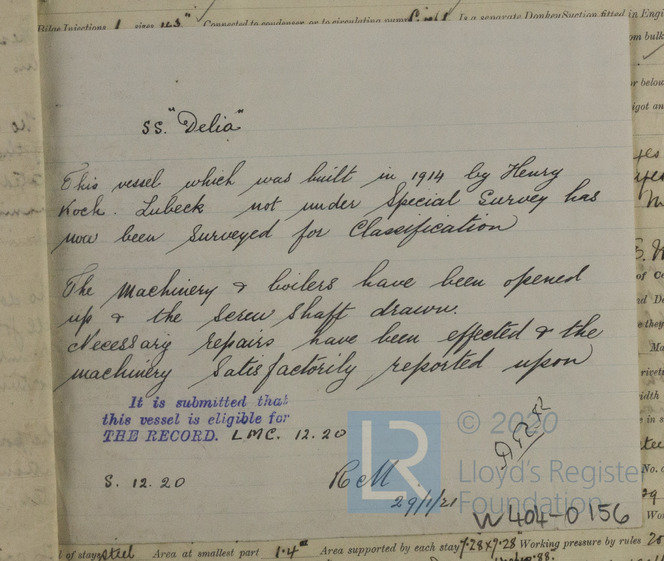 Bilge Injections 1 sizes 4.5" Connected to condenser, or to circulating pump Is a separate Donkey Suction fitted in Engi
SS. "Delia"
This vessel which was built in 1914 by Henry
Koch. Lubeck not under Special Survey has
now been Surveyed for Classification
The Machinery & boilers have been opened
up & the screw shaft drawn.
Necessary repairs have been effected & the
machinery Satisfactorily reported upon
It is submitted that
this vessel is eligible for
THE RECORD. LMC. 12.20
S. 12.20
29/1/21
LR
© 2020
Lloyd's Register
Foundation
W404-0156
of stays steel Area at smallest part 1.4" Area supported by each stay 7.28x7.28" Working pressure by rules